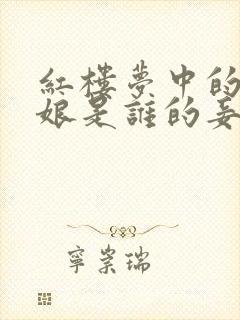 紅樓夢中的
娘是誰的妾
寧崇瑞